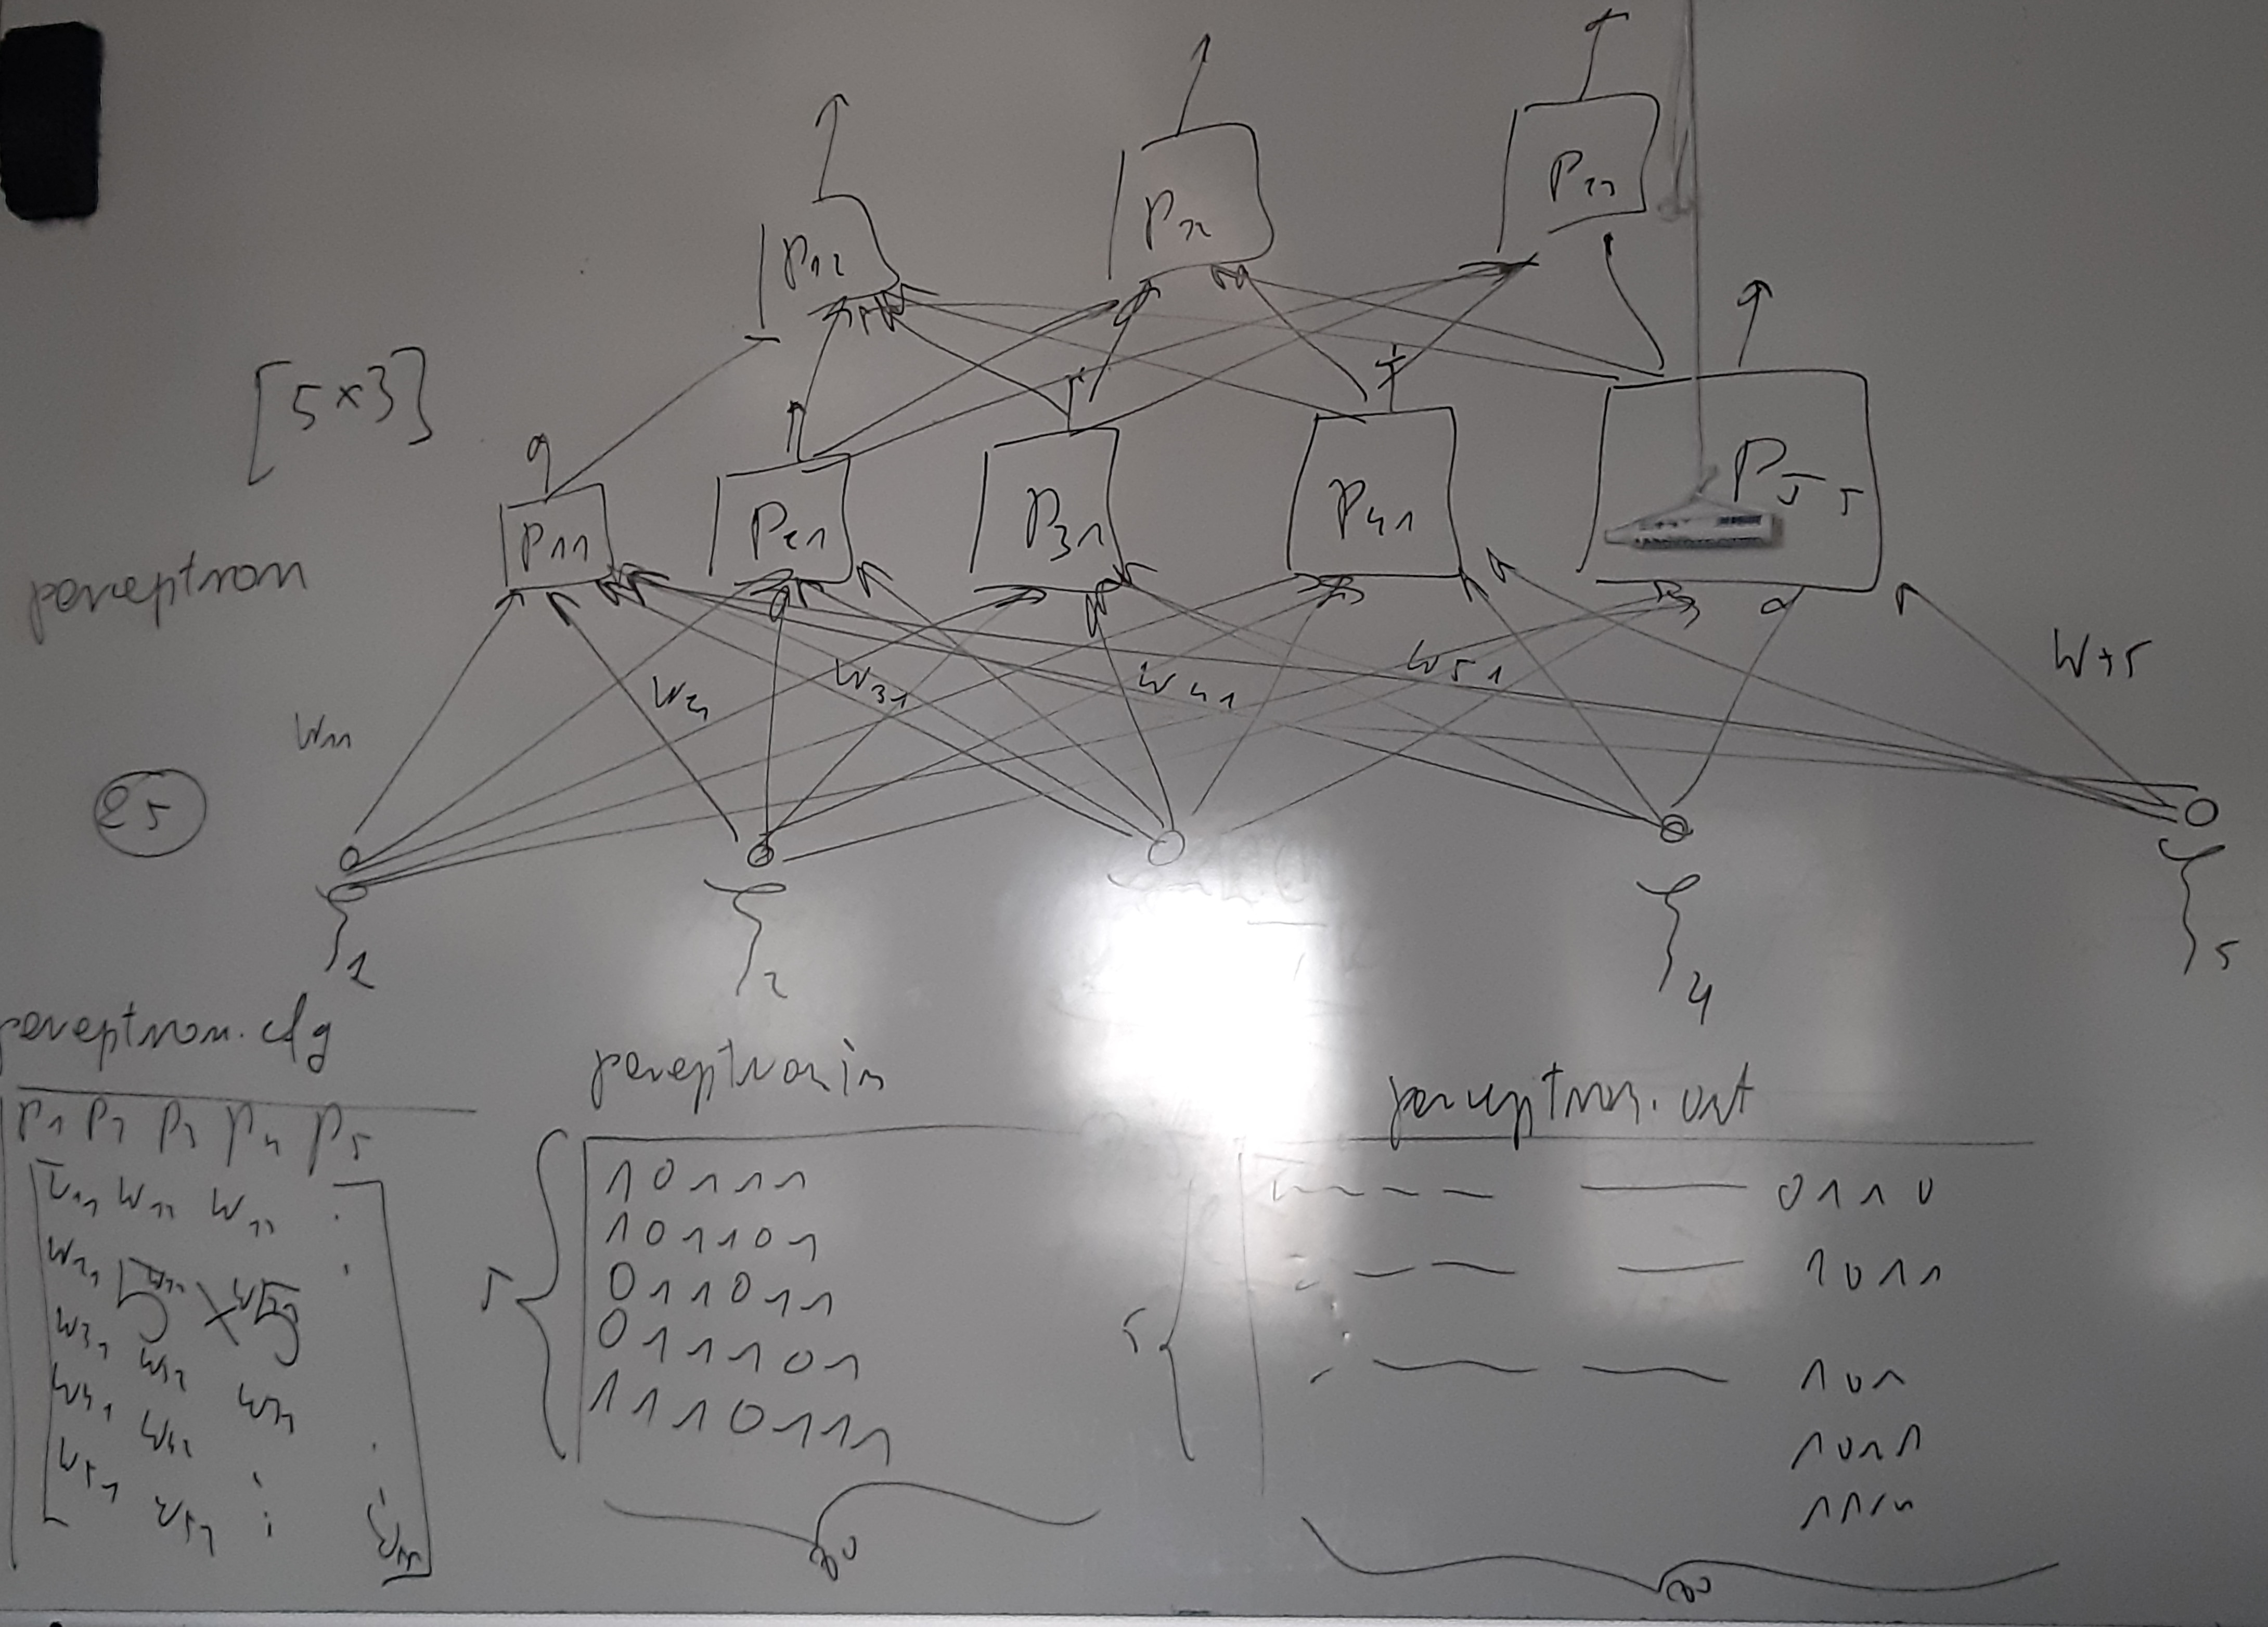 P12
P22
[5×3]
P11
P21
P31
P41
P55
perceptron
W11
W21
W31
W41
W51
W55
25
ξ1
ξ2
ξ4
ξ5
perceptron.cfg
P1 P2 P3 P4 P5
W11 W12 W13
W21
5×5
W31 W32
W41 W42
W51 W52
perceptron.in
5
10111
101101
011011
011101
1110111
∞
perceptron.out
5
0110
1011
101
1011
∞